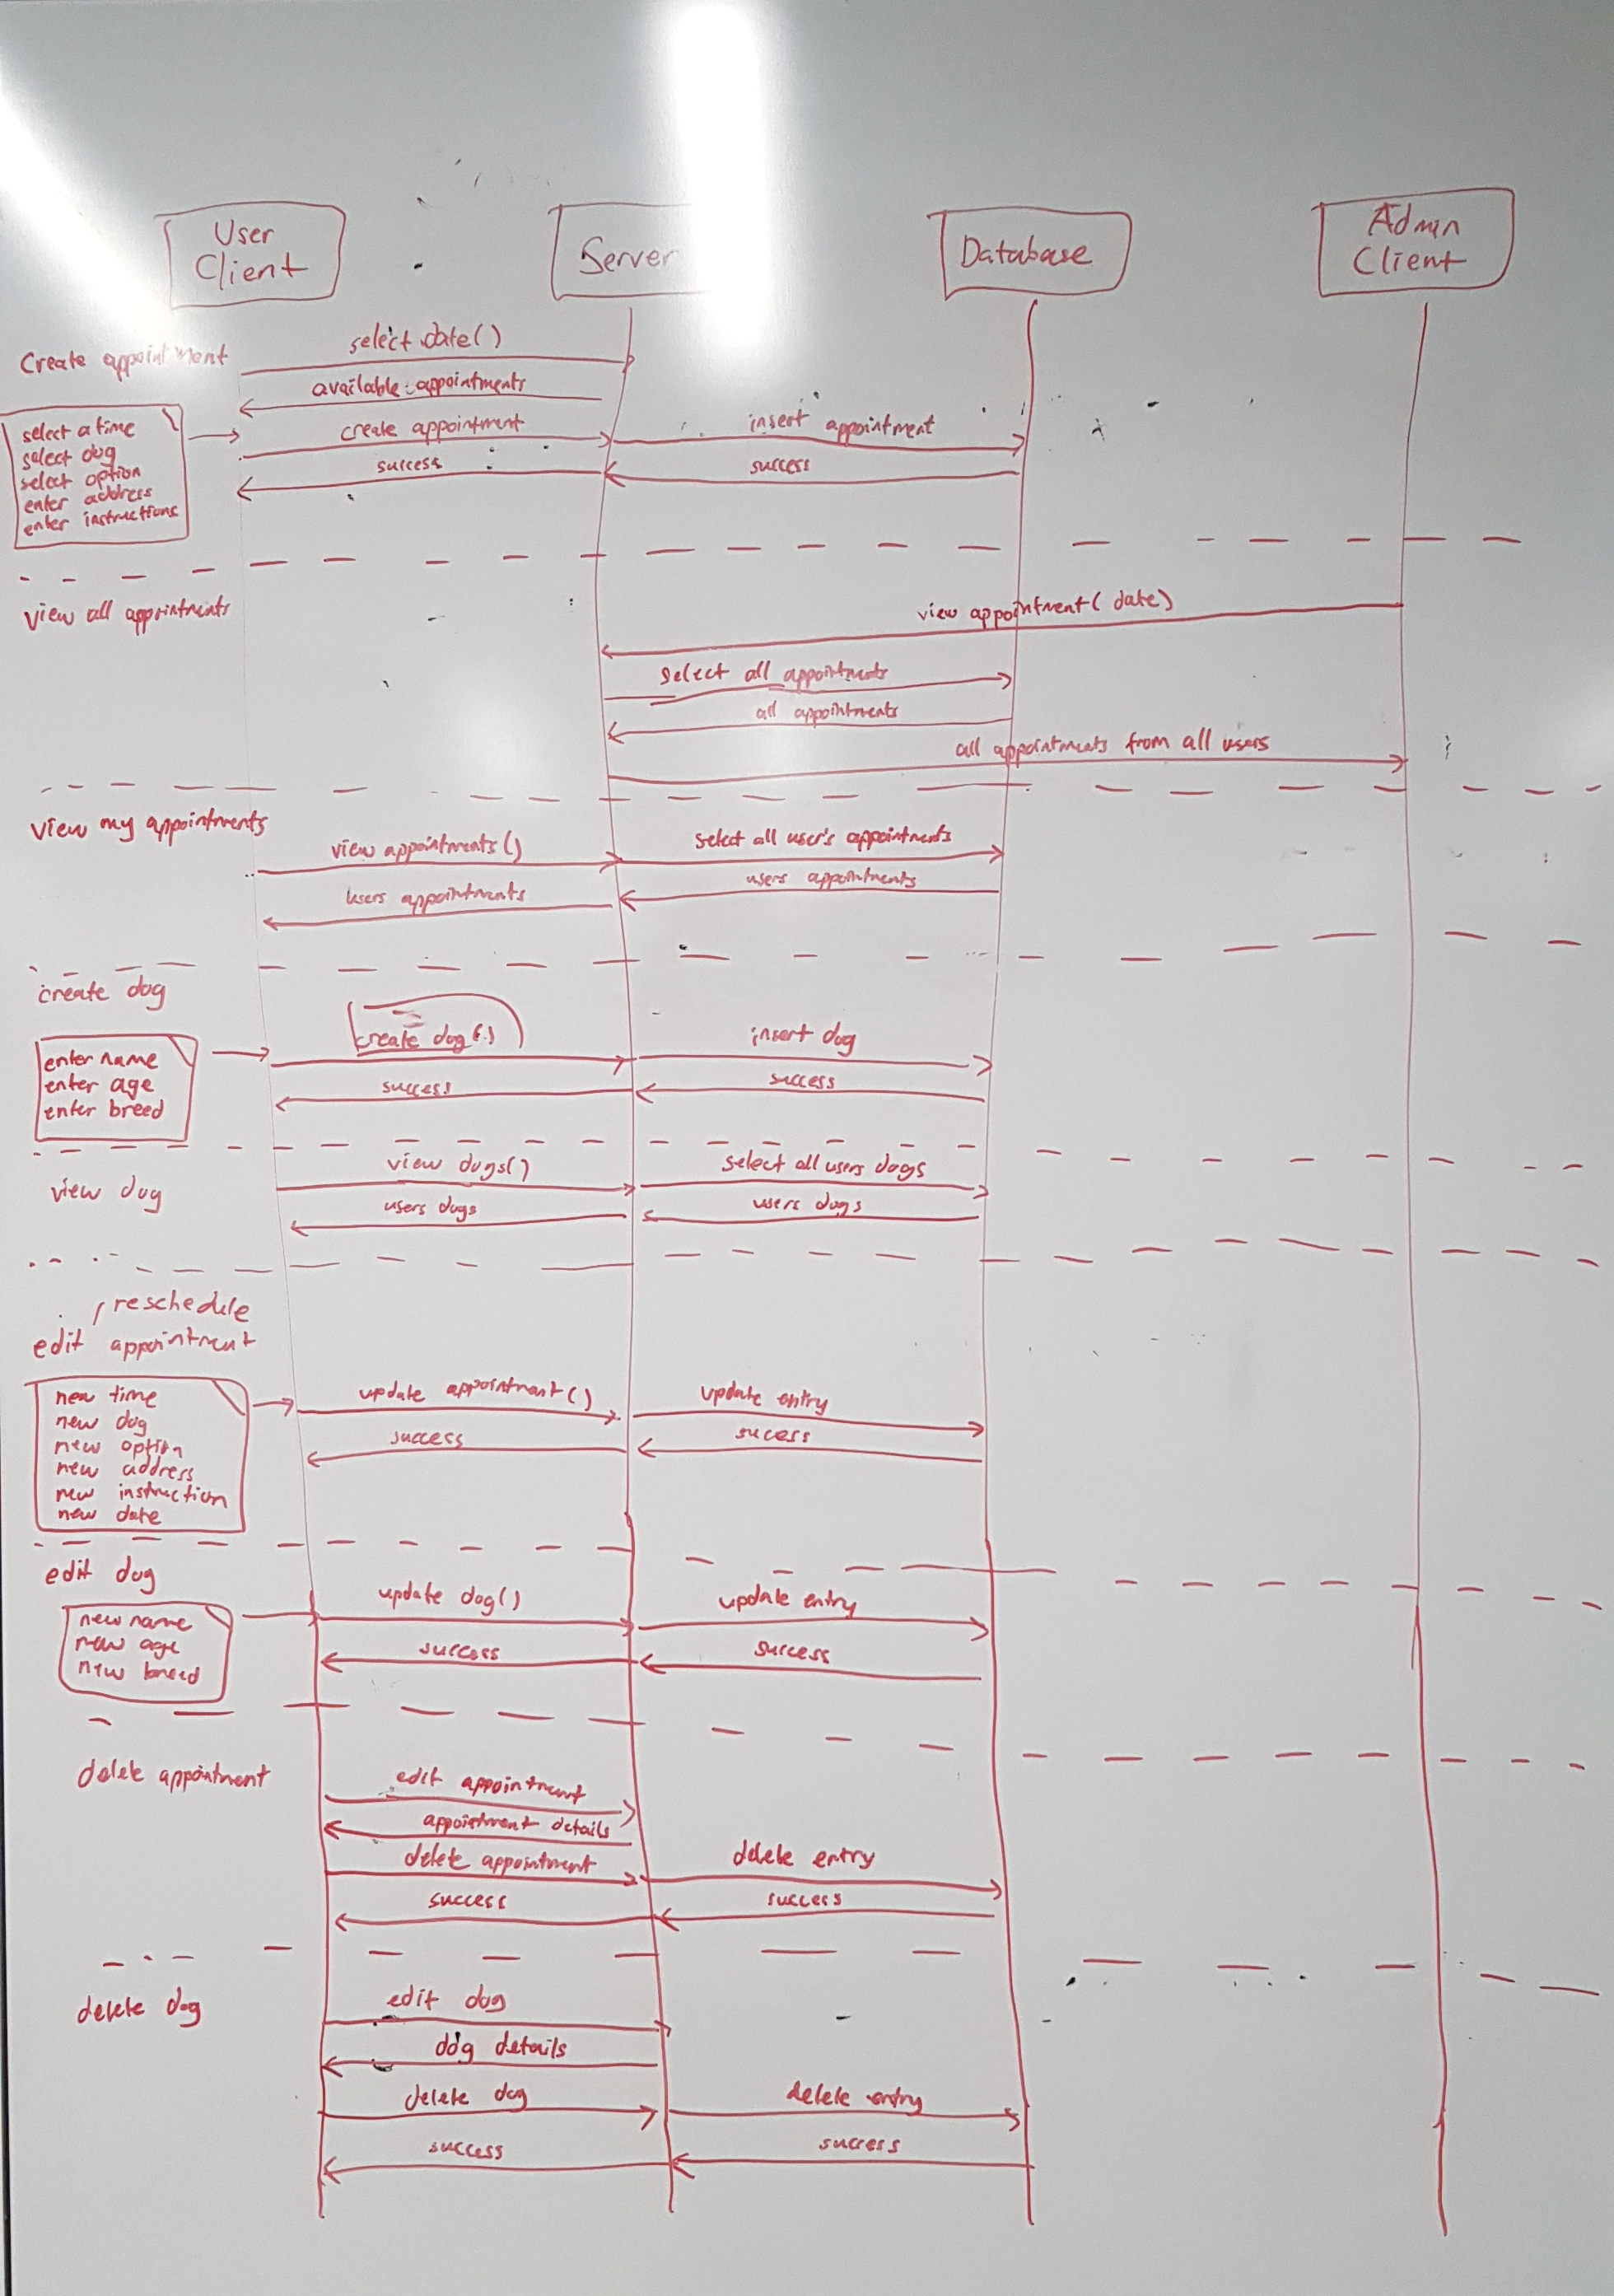 User
Client
Server
Database
Admin
Client
Create appointment
select date()
available appointments
select a time
select dog
select option
enter address
enter instructions
create appointment
insert appointment
success
success
view all appointments
view appointment( date)
select all appointments
all appointments
all appointments from all users
view my appointments
view appointments()
select all user's appointments
users appointments
users appointments
create dog
enter name
enter age
enter breed
create dog()
insert dog
success
success
view dog
view dogs()
select all users dogs
users dogs
users dogs
/reschedule
edit appointment
new time
new dog
new option
new address
new instruction
new date
update appointment()
update entry
success
sucess
edit dog
new name
new age
new breed
update dog()
update entry
success
success
delete appointment
edit appointment
appointment details
delete appointment
delete entry
success
success
delete dog
edit dog
dog details
delete dog
delete entry
success
success